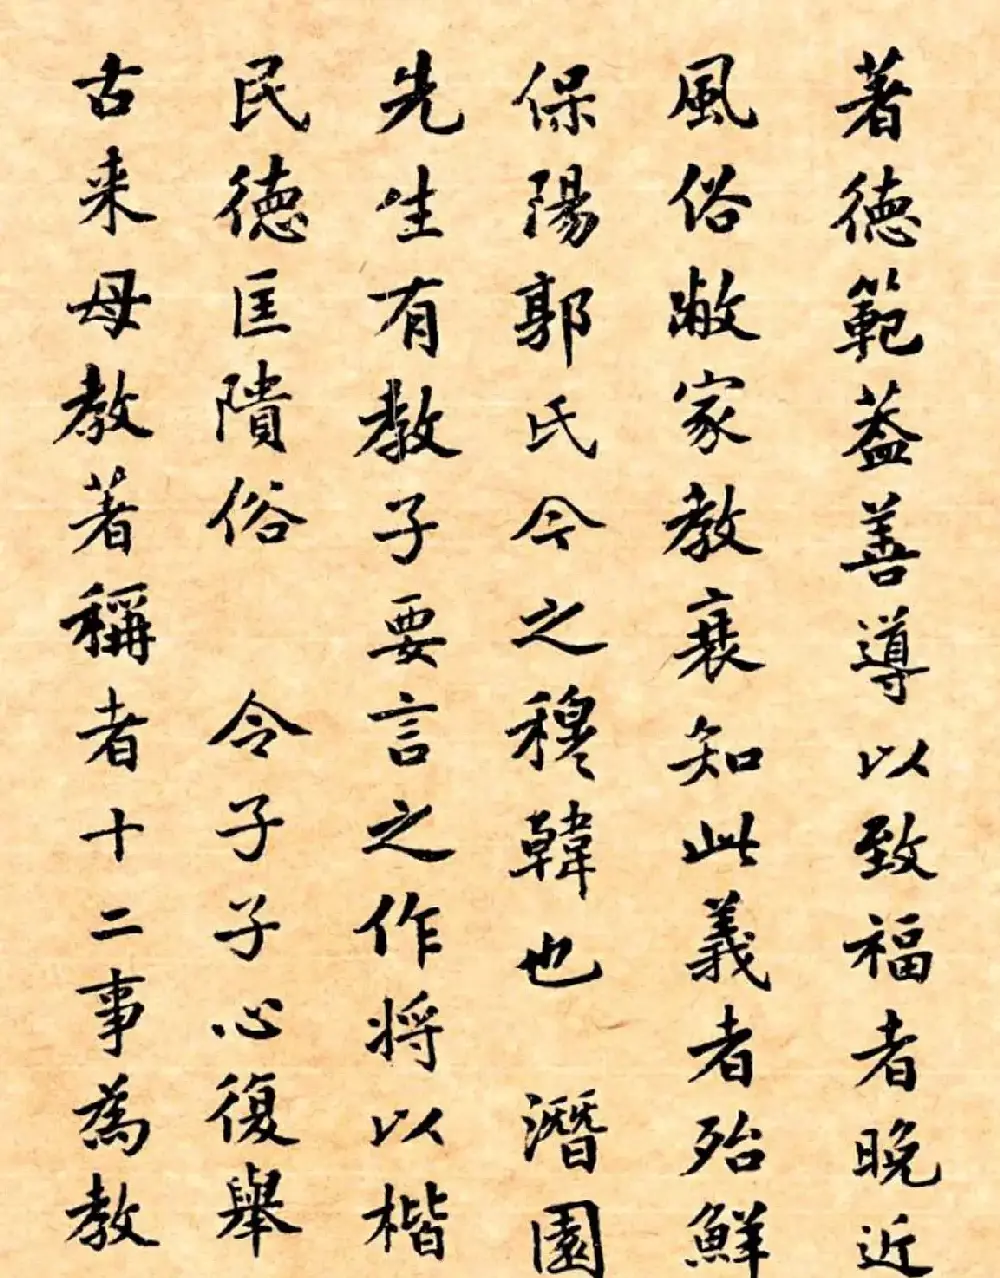 著德範蓋善導以致福者晚近
風俗敝家教衰知此義者殆鮮
保陽郭氏今之穆韓也 潛園
先生有教子要言之作將以楷
民德匡隤俗 令子子心復舉
古来母教著稱者十二事為教